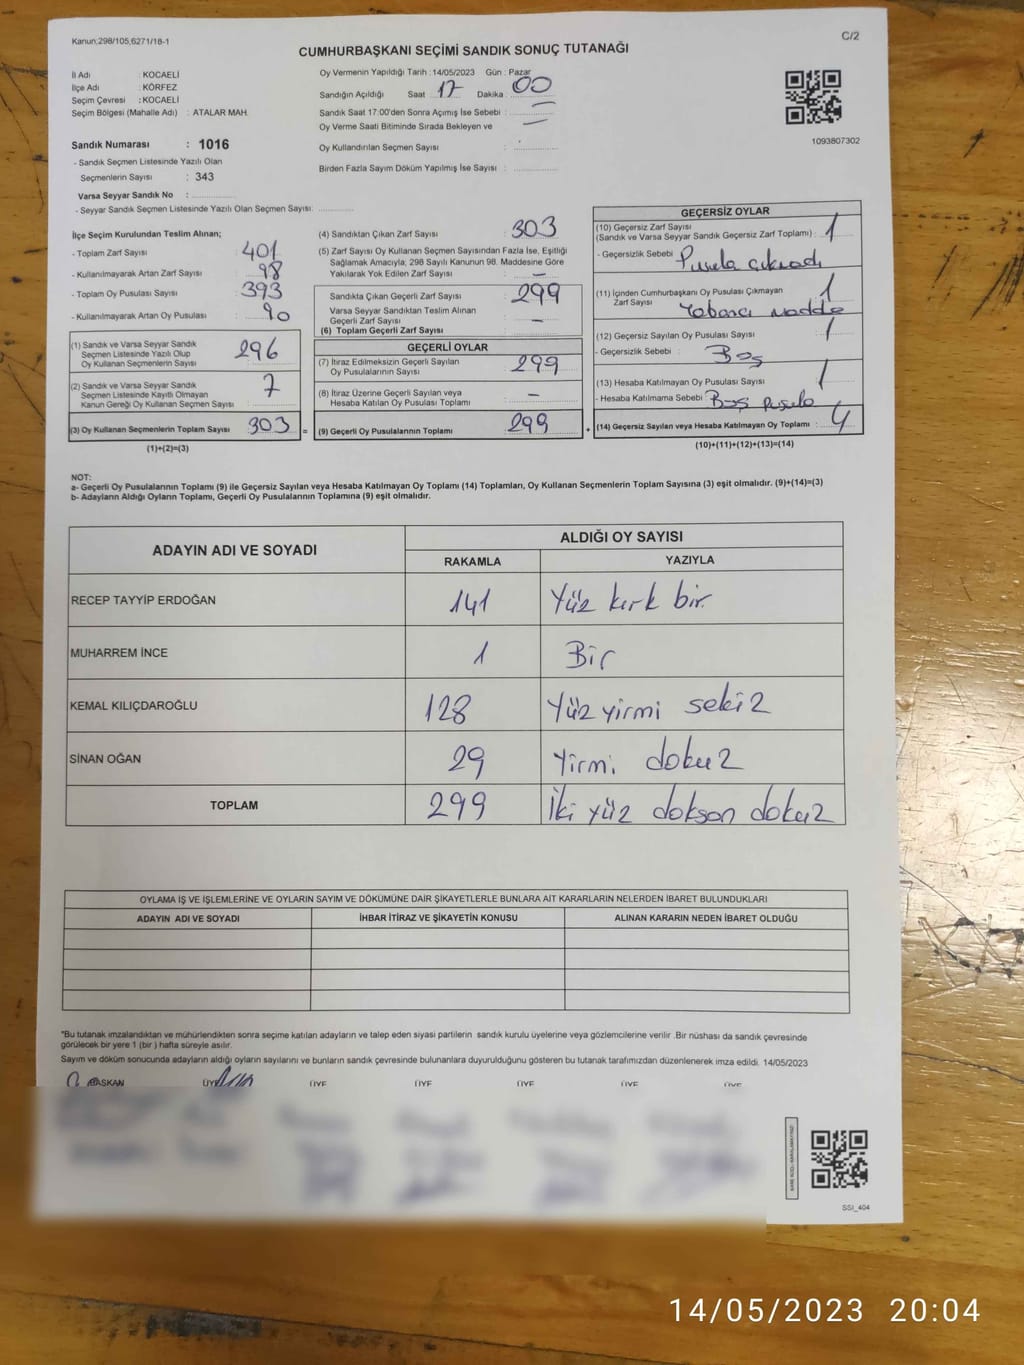 Kanun;298/105,6271/18-1
C/2
CUMHURBAŞKANI SEÇİMİ SANDIK SONUÇ TUTANAĞI
İl Adı : KOCAELİ
İlçe Adı : KÖRFEZ
Seçim Çevresi : KOCAELİ
Seçim Bölgesi (Mahalle Adı) : ATALAR MAH.
Sandık Numarası : 1016
- Sandık Seçmen Listesinde Yazılı Olan
Seçmenlerin Sayısı : 343
Varsa Seyyar Sandık No :
- Seyyar Sandık Seçmen Listesinde Yazılı Olan Seçmen Sayısı:
Oy Vermenin Yapıldığı Tarih :14/05/2023 Gün : Pazar
Sandığın Açıldığı Saat :17 Dakika :00
Sandık Saat 17:00'den Sonra Açımış İse Sebebi : —
Oy Verme Saati Bitiminde Sırada Bekleyen ve —
Oy Kullandırılan Seçmen Sayısı :
Birden Fazla Sayım Döküm Yapılmış İse Sayısı :
1093807302
İlçe Seçim Kurulundan Teslim Alınan;
- Toplam Zarf Sayısı : 401
- Kullanılmayarak Artan Zarf Sayısı : 98
- Toplam Oy Pusulası Sayısı : 393
- Kullanılmayarak Artan Oy Pusulası : 90
(1) Sandık ve Varsa Seyyar Sandık
Seçmen Listesinde Yazılı Olup
Oy Kullanan Seçmenlerin Sayısı : 296
(2) Sandık ve Varsa Seyyar Sandık
Seçmen Listesinde Kayıtlı Olmayan
Kanun Gereği Oy Kullanan Seçmen Sayısı : 7
(3) Oy Kullanan Seçmenlerin Toplam Sayısı : 303 =
(1)+(2)=(3)
(4) Sandıktan Çıkan Zarf Sayısı : 303
(5) Zarf Sayısı Oy Kullanan Seçmen Sayısından Fazla İse, Eşitliği
Sağlamak Amacıyla; 298 Sayılı Kanunun 98. Maddesine Göre
Yakılarak Yok Edilen Zarf Sayısı : —
Sandıkta Çıkan Geçerli Zarf Sayısı : 299
Varsa Seyyar Sandıktan Teslim Alınan
Geçerli Zarf Sayısı : —
(6) Toplam Geçerli Zarf Sayısı
GEÇERLİ OYLAR
(7) İtiraz Edilmeksizin Geçerli Sayılan
Oy Pusulalarının Sayısı : 299
(8) İtiraz Üzerine Geçerli Sayılan veya
Hesaba Katılan Oy Pusulası Toplamı : —
(9) Geçerli Oy Pusulalarının Toplamı : 299 +
GEÇERSİZ OYLAR
(10) Geçersiz Zarf Sayısı
(Sandık ve Varsa Seyyar Sandık Geçersiz Zarf Toplamı) : 1
- Geçersizlik Sebebi : Pusula çıkmadı
(11) İçinden Cumhurbaşkanı Oy Pusulası Çıkmayan
Zarf Sayısı : 1
Yabancı madde
(12) Geçersiz Sayılan Oy Pusulası Sayısı : 1
- Geçersizlik Sebebi : Boş
(13) Hesaba Katılmayan Oy Pusulası Sayısı : 1
- Hesaba Katılmama Sebebi : Boş Pusula
(14) Geçersiz Sayılan veya Hesaba Katılmayan Oy Toplamı : 4
(10)+(11)+(12)+(13)=(14)
NOT:
a- Geçerli Oy Pusulalarının Toplamı (9) ile Geçersiz Sayılan veya Hesaba Katılmayan Oy Toplamı (14) Toplamları, Oy Kullanan Seçmenlerin Toplam Sayısına (3) eşit olmalıdır. (9)+(14)=(3)
b- Adayların Aldığı Oyların Toplamı, Geçerli Oy Pusulalarının Toplamına (9) eşit olmalıdır.
ADAYIN ADI VE SOYADI
ALDIĞI OY SAYISI
RAKAMLA YAZIYLA
RECEP TAYYİP ERDOĞAN 141 Yüz kırk bir.
MUHARREM İNCE 1 Bir
KEMAL KILIÇDAROĞLU 128 Yüz yirmi sekiz
SİNAN OĞAN 29 Yirmi dokuz
TOPLAM 299 İki yüz doksan dokuz
OYLAMA İŞ VE İŞLEMLERİNE VE OYLARIN SAYIM VE DÖKÜMÜNE DAİR ŞİKAYETLERLE BUNLARA AİT KARARLARIN NELERDEN İBARET BULUNDUKLARI
ADAYIN ADI VE SOYADI İHBAR İTİRAZ VE ŞİKAYETİN KONUSU ALINAN KARARIN NEDEN İBARET OLDUĞU
*Bu tutanak imzalandıktan ve mühürlendikten sonra seçime katılan adayların ve talep eden siyasi partilerin sandık kurulu üyelerine veya gözlemcilerine verilir .Bir nüshası da sandık çevresinde
görülecek bir yere 1 (bir ) hafta süreyle asılır.
Sayım ve döküm sonucunda adayların aldığı oyların sayılarını ve bunların sandık çevresinde bulunanlara duyurulduğunu gösteren bu tutanak tarafımızdan düzenlenerek imza edildi. 14/05/2023
BAŞKAN ÜYE ÜYE ÜYE ÜYE ÜYE ÜYE
SSI_404
14/05/2023 20:04